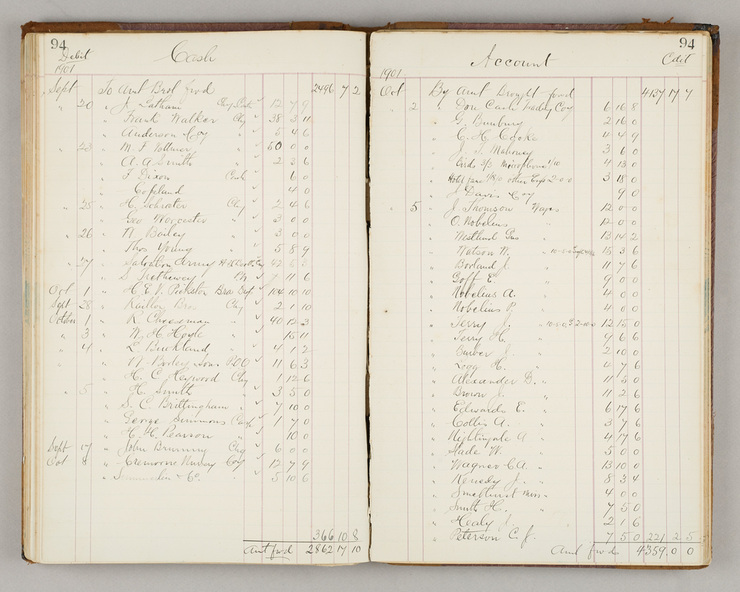 94
Debit
Cash
1901
Sept To Amt Brot Fwd 2496 7 2
" 20 " J. Latham 12 7 9
" Frank Walker Chq 38 3 11
" Anderson & Coy 5 4 6
" 23 " M. F. Vollmer 50 0 0
" A. A. Smith 2 3 6
" F Dixon Cash 6 0
" Copeland 4 0
" 25 " H. Schroter Chq 2 4 6
" Geo Worcester " 3 0 0
" 26 " N. Bailey " 3 0 0
" Thos Young " 5 8 9
" 27 " Salvation Army
" S. Trethewey 7 11 6
Oct 1 " 104 10 10
Sept 28 " Bros Chq 2 1 10
October 1 " R. Cheesman " 40 12 3
" 3 " W. H. Hoyle " 15 11
" 4 " L. Buckland " 4 1 2
" Son P.O.O 11 6 3
" H. C. Heywood Chq 1 12 6
" 5 " H. Smith " 3 5 0
" S. C. Brittingham " 7 10 0
" George Simmons 1 7 0
" H. H. Pearson " 10 0
Sept 17 " John Brunning Chq 6 0 0
Oct 8 " Cremorne Nursery Coy 12 7 9
" & Co. 5 10 6
366 10 8
Amt fwd 2862 17 10
94
Account
Cdit
1901
Oct By Amt Brought fwd 4137 17 7
" 2 " Coy 6 10 8
" G. Bunbury 2 16 0
" C. H. Cooke 4 4 9
" J. J. Mahoney 3 6 0
" 4 13 0
" 3 18 0
" J. Davis Coy 9 0
" 5 " J. Thomson Wages 12 0 0
" O. Nobelius " 12 0 0
" Wetland Gus " 13 14 2
" Watson W. " 15 3 6
" Borland J. " 11 7 6
" Goff E. " 9 0 0
" Nobelius A. " 4 0 0
" Nobelius P. " 4 0 0
" Terry J. " 12 15 0
" Terry H. " 9 6 6
" Ember J. " 2 10 0
" Legg H. " 4 7 6
" Alexander D. " 11 5 0
" Brown J. " 11 2 6
" Edwards E. " 6 17 6
" Coller A. " 3 7 6
" Nightingale A " 4 17 6
" W. " 5 0 0
" Wagner C.A. " 13 10 0
" Kenedy J. " 8 3 4
" Smethurst Miss " 4 0 0
" Smith H. " 7 5 0
" Healy J. " 2 1 6
" Peterson C. J. 7 5 0 221 2 5
Amt fwd 4359 0 0